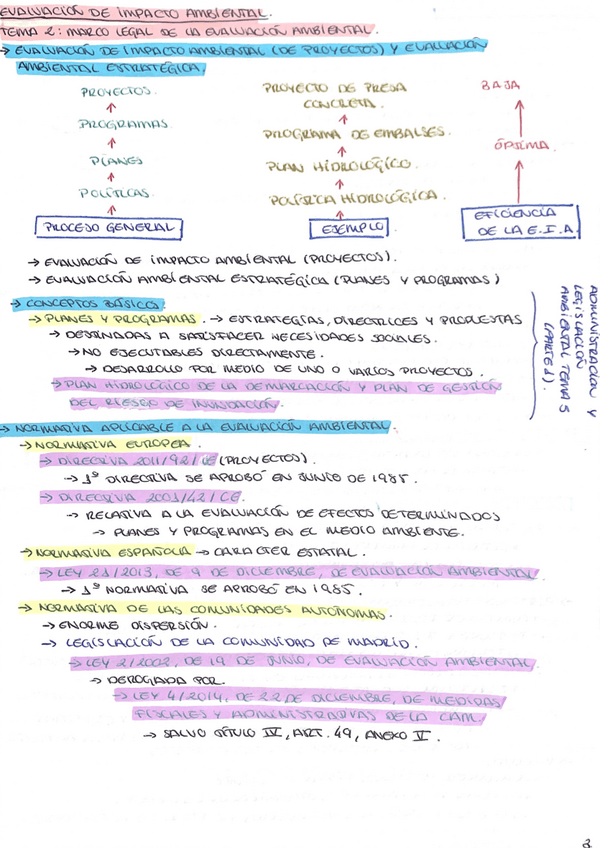 EVALUACIÓN DE IMPACTO AMBIENTAL.
TEMA 2: MARCO LEGAL DE LA EVALUACIÓN AMBIENTAL.
→ EVALUACIÓN DE IMPACTO AMBIENTAL (DE PROYECTOS) Y EVALUACIÓN
AMBIENTAL ESTRATÉGICA.
PROYECTOS.
↑
PROGRAMAS.
↑
PLANES
↑
POLÍTICAS.
↑
PROCESO GENERAL
PROYECTO DE PRESA
CONCRETA.
↑
PROGRAMA DE EMBALSES.
↑
PLAN HIDROLÓGICO.
↑
POLÍTICA HIDROLÓGICA.
↑
EJEMPLO
BAJA
↑
ÓPTIMA.
↑
EFICIENCIA
DE LA E.I.A.
→ EVALUACIÓN DE IMPACTO AMBIENTAL (PROYECTOS).
→ EVALUACIÓN AMBIENTAL ESTRATÉGICA (PLANES Y PROGRAMAS)
→ CONCEPTOS BÁSICOS.
→ PLANES Y PROGRAMAS. → ESTRATEGIAS, DIRECTRICES Y PROPUESTAS
→ DESTINADAS A SATISFACER NECESIDADES SOCIALES.
→ NO EJECUTABLES DIRECTAMENTE.
→ DESARROLLO POR MEDIO DE UNO O VARIOS PROYECTOS.
→ PLAN HIDROLÓGICO DE LA DEMARCACIÓN Y PLAN DE GESTIÓN
DEL RIESGO DE INUNDACIÓN.
ADMINISTRACIÓN Y
LEGISLACIÓN
AMBIENTAL TEMA 5
(PARTE 1).
→ NORMATIVA APLICABLE A LA EVALUACIÓN AMBIENTAL.
→ NORMATIVA EUROPEA.
→ DIRECTIVA 2011/92/UE (PROYECTOS).
→ 1º DIRECTIVA SE APROBÓ EN JUNIO DE 1985.
→ DIRECTIVA 2001/42/CE.
→ RELATIVA A LA EVALUACIÓN DE EFECTOS DETERMINADOS
→ PLANES Y PROGRAMAS EN EL MEDIO AMBIENTE.
→ NORMATIVA ESPAÑOLA → CARACTER ESTATAL.
→ LEY 21/2013, DE 9 DE DICIEMBRE, DE EVALUACIÓN AMBIENTAL.
→ 1º NORMATIVA SE APROBÓ EN 1985.
→ NORMATIVA DE LAS COMUNIDADES AUTÓNOMAS.
→ ENORME DISPERSIÓN.
→ LEGISLACIÓN DE LA COMUNIDAD DE MADRID.
→ LEY 2/2002, DE 19 DE JUNIO, DE EVALUACIÓN AMBIENTAL.
→ DEROGADA POR.
→ LEY 4/2014, DE 22 DE DICIEMBRE, DE MEDIDAS
FISCALES Y ADMINISTRATIVAS DE LA CAM.
→ SALVO TÍTULO IV, ART. 49, ANEXO V.
2